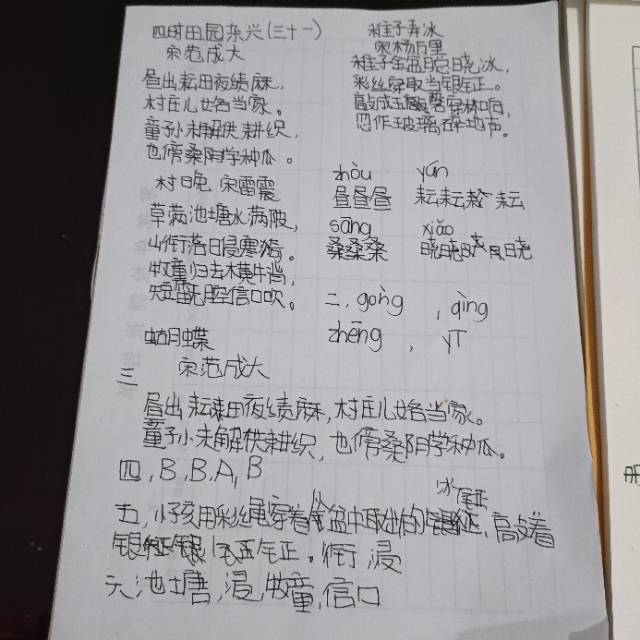 四时田园杂兴(三十一)
宋范成大
昼出耘田夜绩麻,
村庄儿女各当家。
童孙未解供耕织,
也傍桑阴学种瓜。
村晚 宋雷震
草满池塘水满陂,
山衔落日浸寒漪。
牧童归去横牛背,
短笛无腔信口吹。
蝴蝶
稚子弄冰
宋杨万里
稚子金盆脱晓冰,
彩丝穿取当银钲。
敲成玉磬穿林响,
忽作玻璃碎地声。
zhòu yún
昼昼昼 耘耘耘耘
sāng xiǎo
桑桑桑 晓晓晓晓
二, gòng , qìng
zhēng , yī
三 宋范成大
昼出耘田夜绩麻,村庄儿女各当家。
童孙未解供耕织,也傍桑阴学种瓜。
四,B,B,A,B
冰钲
五,小孩用彩绳穿着从金盆中取出的,高敲着
银钲。衔,浸
六池塘,浸,牧童,信口